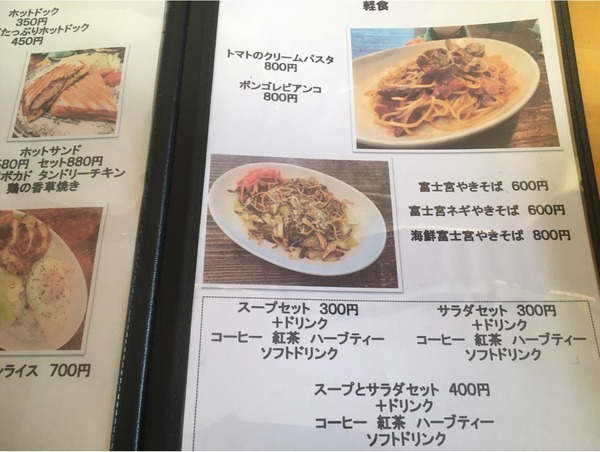 ホットドック
350円
たっぷりホットドック
450円
ホットサンド
580円 セット880円
ボカド タンドリーチキン
鶏の香草焼き
ライス 700円
軽食
トマトのクリームパスタ
800円
ボンゴレビアンコ
800円
富士宮やきそば 600円
富士宮ネギやきそば 600円
海鮮富士宮やきそば 800円
スープセット 300円
＋ドリンク
コーヒー 紅茶 ハーブティー
ソフトドリンク
サラダセット 300円
＋ドリンク
コーヒー 紅茶 ハーブティー
ソフトドリンク
スープとサラダセット 400円
＋ドリンク
コーヒー 紅茶 ハーブティー
ソフトドリンク